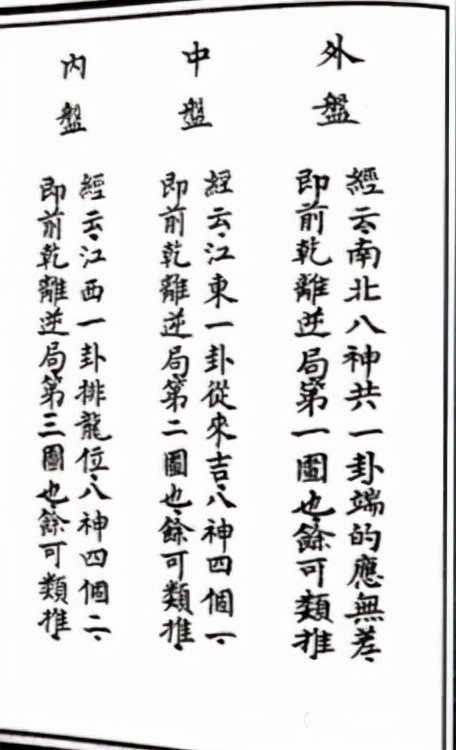 外盤
經云、南北八神共一卦端的應無差、
即前乾離逆局第一圖也、餘可類推
中盤
經云、江東一卦從來吉、八神四個一、
即前乾離逆局第二圖也、餘可類推、
內盤
經云、江西一卦排龍位、八神四個二、
即前乾離逆局第三圖也、餘可類推、